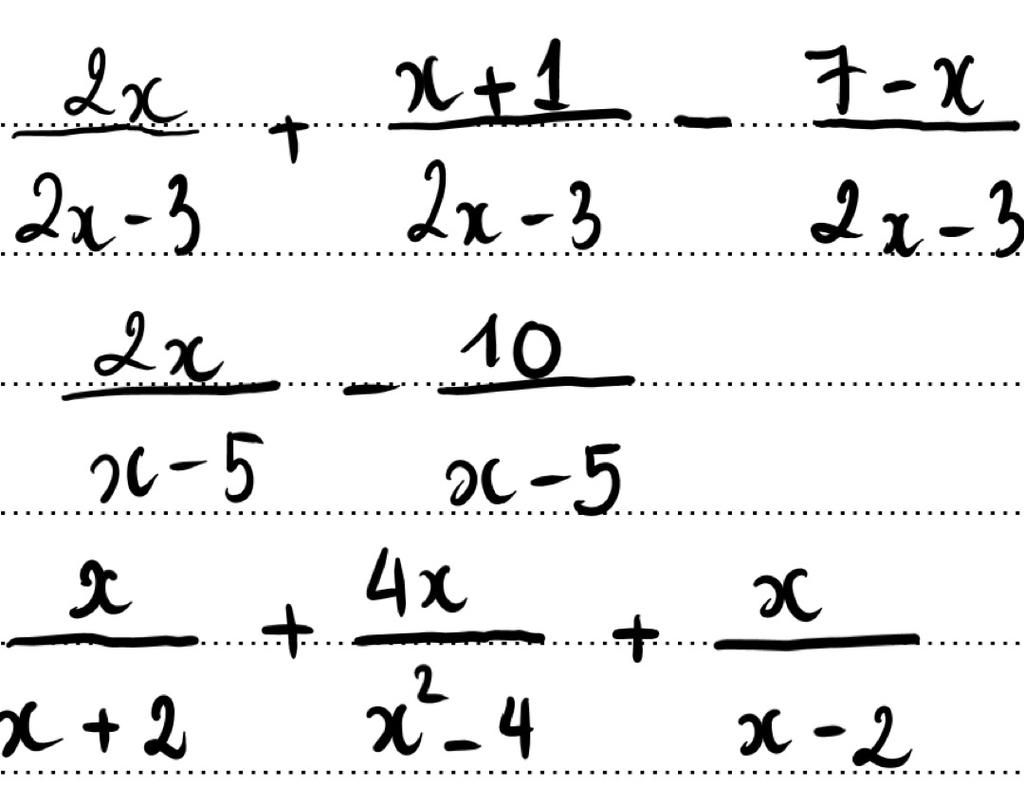 2x/(2x-3) + (x+1)/(2x-3) - (7-x)/(2x-3)
2x/(x-5) - 10/(x-5)
x/(x+2) + 4x/(x²-4) + x/(x-2)